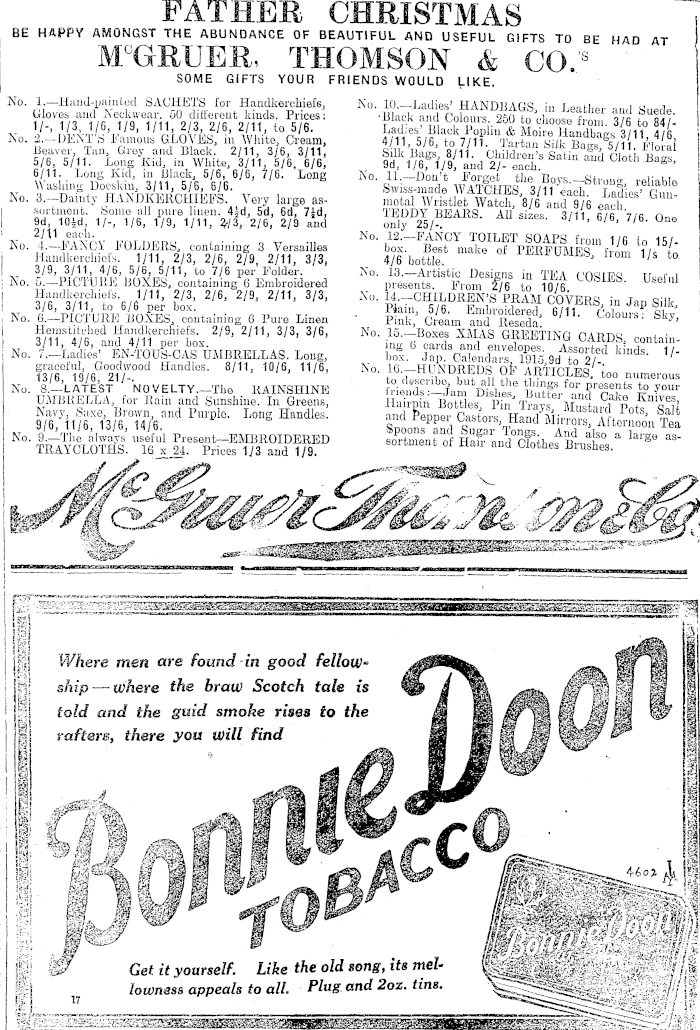 FATHER CHRISTMAS
BE HAPPY AMONGST THE ABUNDANCE OF BEAUTIFUL AND USEFUL GIFTS TO BE HAD AT
McGRUER, THOMSON & CO.'S
SOME GIFTS YOUR FRIENDS WOULD LIKE.
No. 1.—Hand-painted SACHETS for Handkerchiefs,
Gloves and Neckwear. 50 different kinds. Prices:
1/-, 1/3, 1/6, 1/9, 1/11, 2/3, 2/6, 2/11, to 5/6.
No. 2.—DENT'S Famous GLOVES, in White, Cream,
Beaver, Tan, Grey and Black. 2/11, 3/6, 3/11,
5/6, 5/11. Long Kid, in White, 3/11, 5/6, 6/6,
6/11. Long Kid, in Black, 5/6, 6/6, 7/6. Long
Washing Doeskin, 3/11, 5/6, 6/6.
No. 3.—Dainty HANDKERCHIEFS. Very large as-
sortment. Some all pure linen. 4½d, 5d, 6d, 7½d,
9d, 10½d, 1/-, 1/6, 1/9, 1/11, 2/3, 2/6, 2/9 and
2/11 each.
No. 4.—FANCY FOLDERS, containing 3 Versailles
Handkerchiefs. 1/11, 2/3, 2/6, 2/9, 2/11, 3/3,
3/9, 3/11, 4/6, 5/6, 5/11, to 7/6 per Folder.
No. 5.—PICTURE BOXES, containing 6 Embroidered
Handkerchiefs. 1/11, 2/3, 2/6, 2/9, 2/11, 3/3,
3/6, 3/11, to 6/6 per box.
No. 6.—PICTURE BOXES, containing 6 Pure Linen
Hemstitched Handkerchiefs. 2/9, 2/11, 3/3, 3/6,
3/11, 4/6, and 4/11 per box.
No. 7.—Ladies' EN-TOUS-CAS UMBRELLAS. Long,
graceful, Goodwood Handles. 8/11, 10/6, 11/6,
13/6, 19/6, 21/-.
No. 8.—LATEST NOVELTY.—The RAINSHINE
UMBRELLA, for Rain and Sunshine. In Greens,
Navy, Saxe, Brown, and Purple. Long Handles.
9/6, 11/6, 13/6, 14/6.
No. 9.—The always useful Present—EMBROIDERED
TRAYCLOTHS. 16 x 24. Prices 1/3 and 1/9.
No. 10.—Ladies' HANDBAGS, in Leather and Suede.
Black and Colours. 250 to choose from. 3/6 to 84/-
Ladies' Black Poplin & Moire Handbags 3/11, 4/6,
4/11, 5/6, to 7/11. Tartan Silk Bags, 5/11. Floral
Silk Bags, 8/11. Children's Satin and Cloth Bags,
9d, 1/6, 1/9, and 2/- each.
No. 11.—Don't Forget the Boys.—Strong, reliable
Swiss-made WATCHES, 3/11 each. Ladies' Gun-
motal Wristlet Watch, 8/6 and 9/6 each.
TEDDY BEARS. All sizes. 3/11, 6/6, 7/6. One
only 25/-.
No. 12.—FANCY TOILET SOAPS from 1/6 to 15/-
box. Best make of PERFUMES, from 1/s to
4/6 bottle.
No. 13.—Artistic Designs in TEA COSIES. Useful
presents. From 2/6 to 10/6.
No. 14.—CHILDREN'S PRAM COVERS, in Jap Silk,
Plain, 5/6. Embroidered, 6/11. Colours: Sky,
Pink, Cream and Reseda.
No. 15.—Boxes XMAS GREETING CARDS, contain-
ing 6 cards and envelopes. Assorted kinds. 1/-
box. Jap. Calendars, 1915, 9d to 2/-.
No. 16.—HUNDREDS OF ARTICLES, too numerous
to describe, but all the things for presents to your
friends:—Jam Dishes, Butter and Cake Knives,
Hairpin Bottles, Pin Trays, Mustard Pots, Salt
and Pepper Castors, Hand Mirrors, Afternoon Tea
Spoons and Sugar Tongs. And also a large as-
sortment of Hair and Clothes Brushes.
McGruer Thomson & Co
Where men are found in good fellow-
ship — where the braw Scotch tale is
told and the guid smoke rises to the
rafters, there you will find
Bonnie Doon
TOBACCO
4602
Bonnie Doon
Get it yourself. Like the old song, its mel-
lowness appeals to all. Plug and 2oz. tins.
17